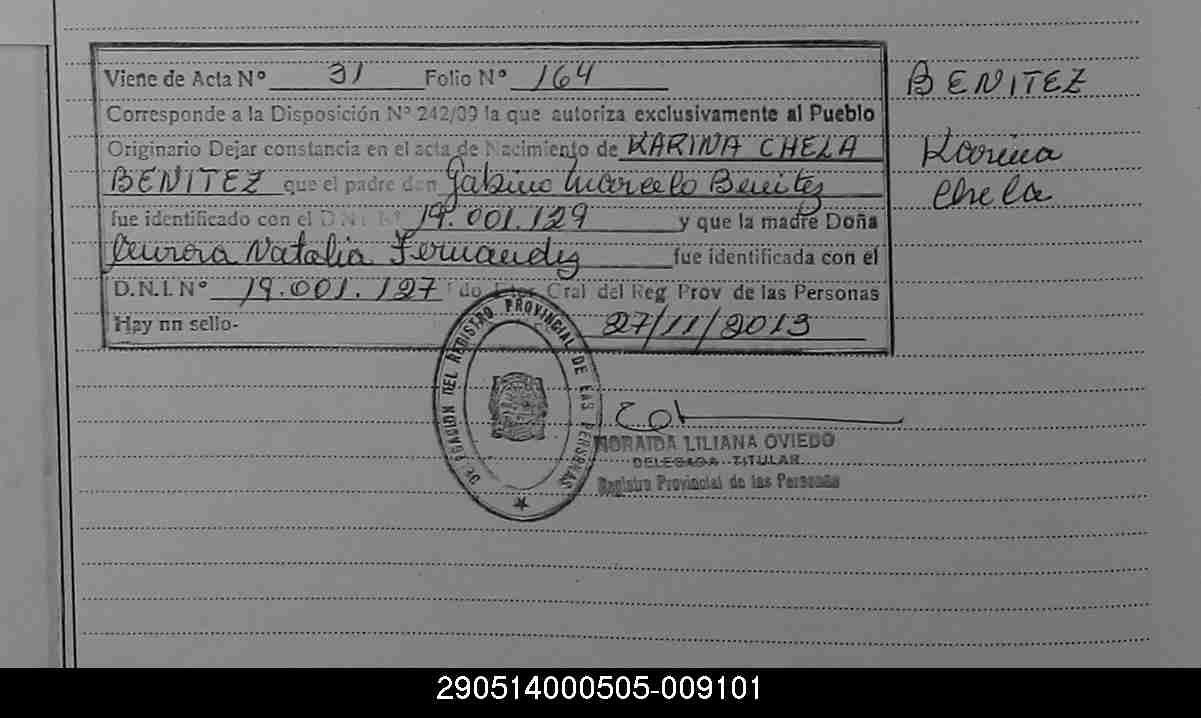 Viene de Acta Nº 31 Folio Nº 164
Corresponde a la Disposición Nº 242/09 la que autoriza exclusivamente al Pueblo
Originario Dejar constancia en el acta de Nacimiento de KARINA CHELA
BENITEZ que el padre don Gabino Marcelo Benitez
fue identificado con el D.N.I. Nº 19.001.129 y que la madre Doña
Aurora Natalia Fernandez fue identificada con el
D.N.I. Nº 19.001.127 Fdo Cral del Reg Prov de las Personas
Hay nn sello- 27/11/2013
BENITEZ
Karina
Chela
DELEGACION DEL REGISTRO PROVINCIAL DE LAS PERSONAS
NORAIDA LILIANA OVIEDO
DELEGADA TITULAR
Registro Provincial de las Personas
290514000505-009101